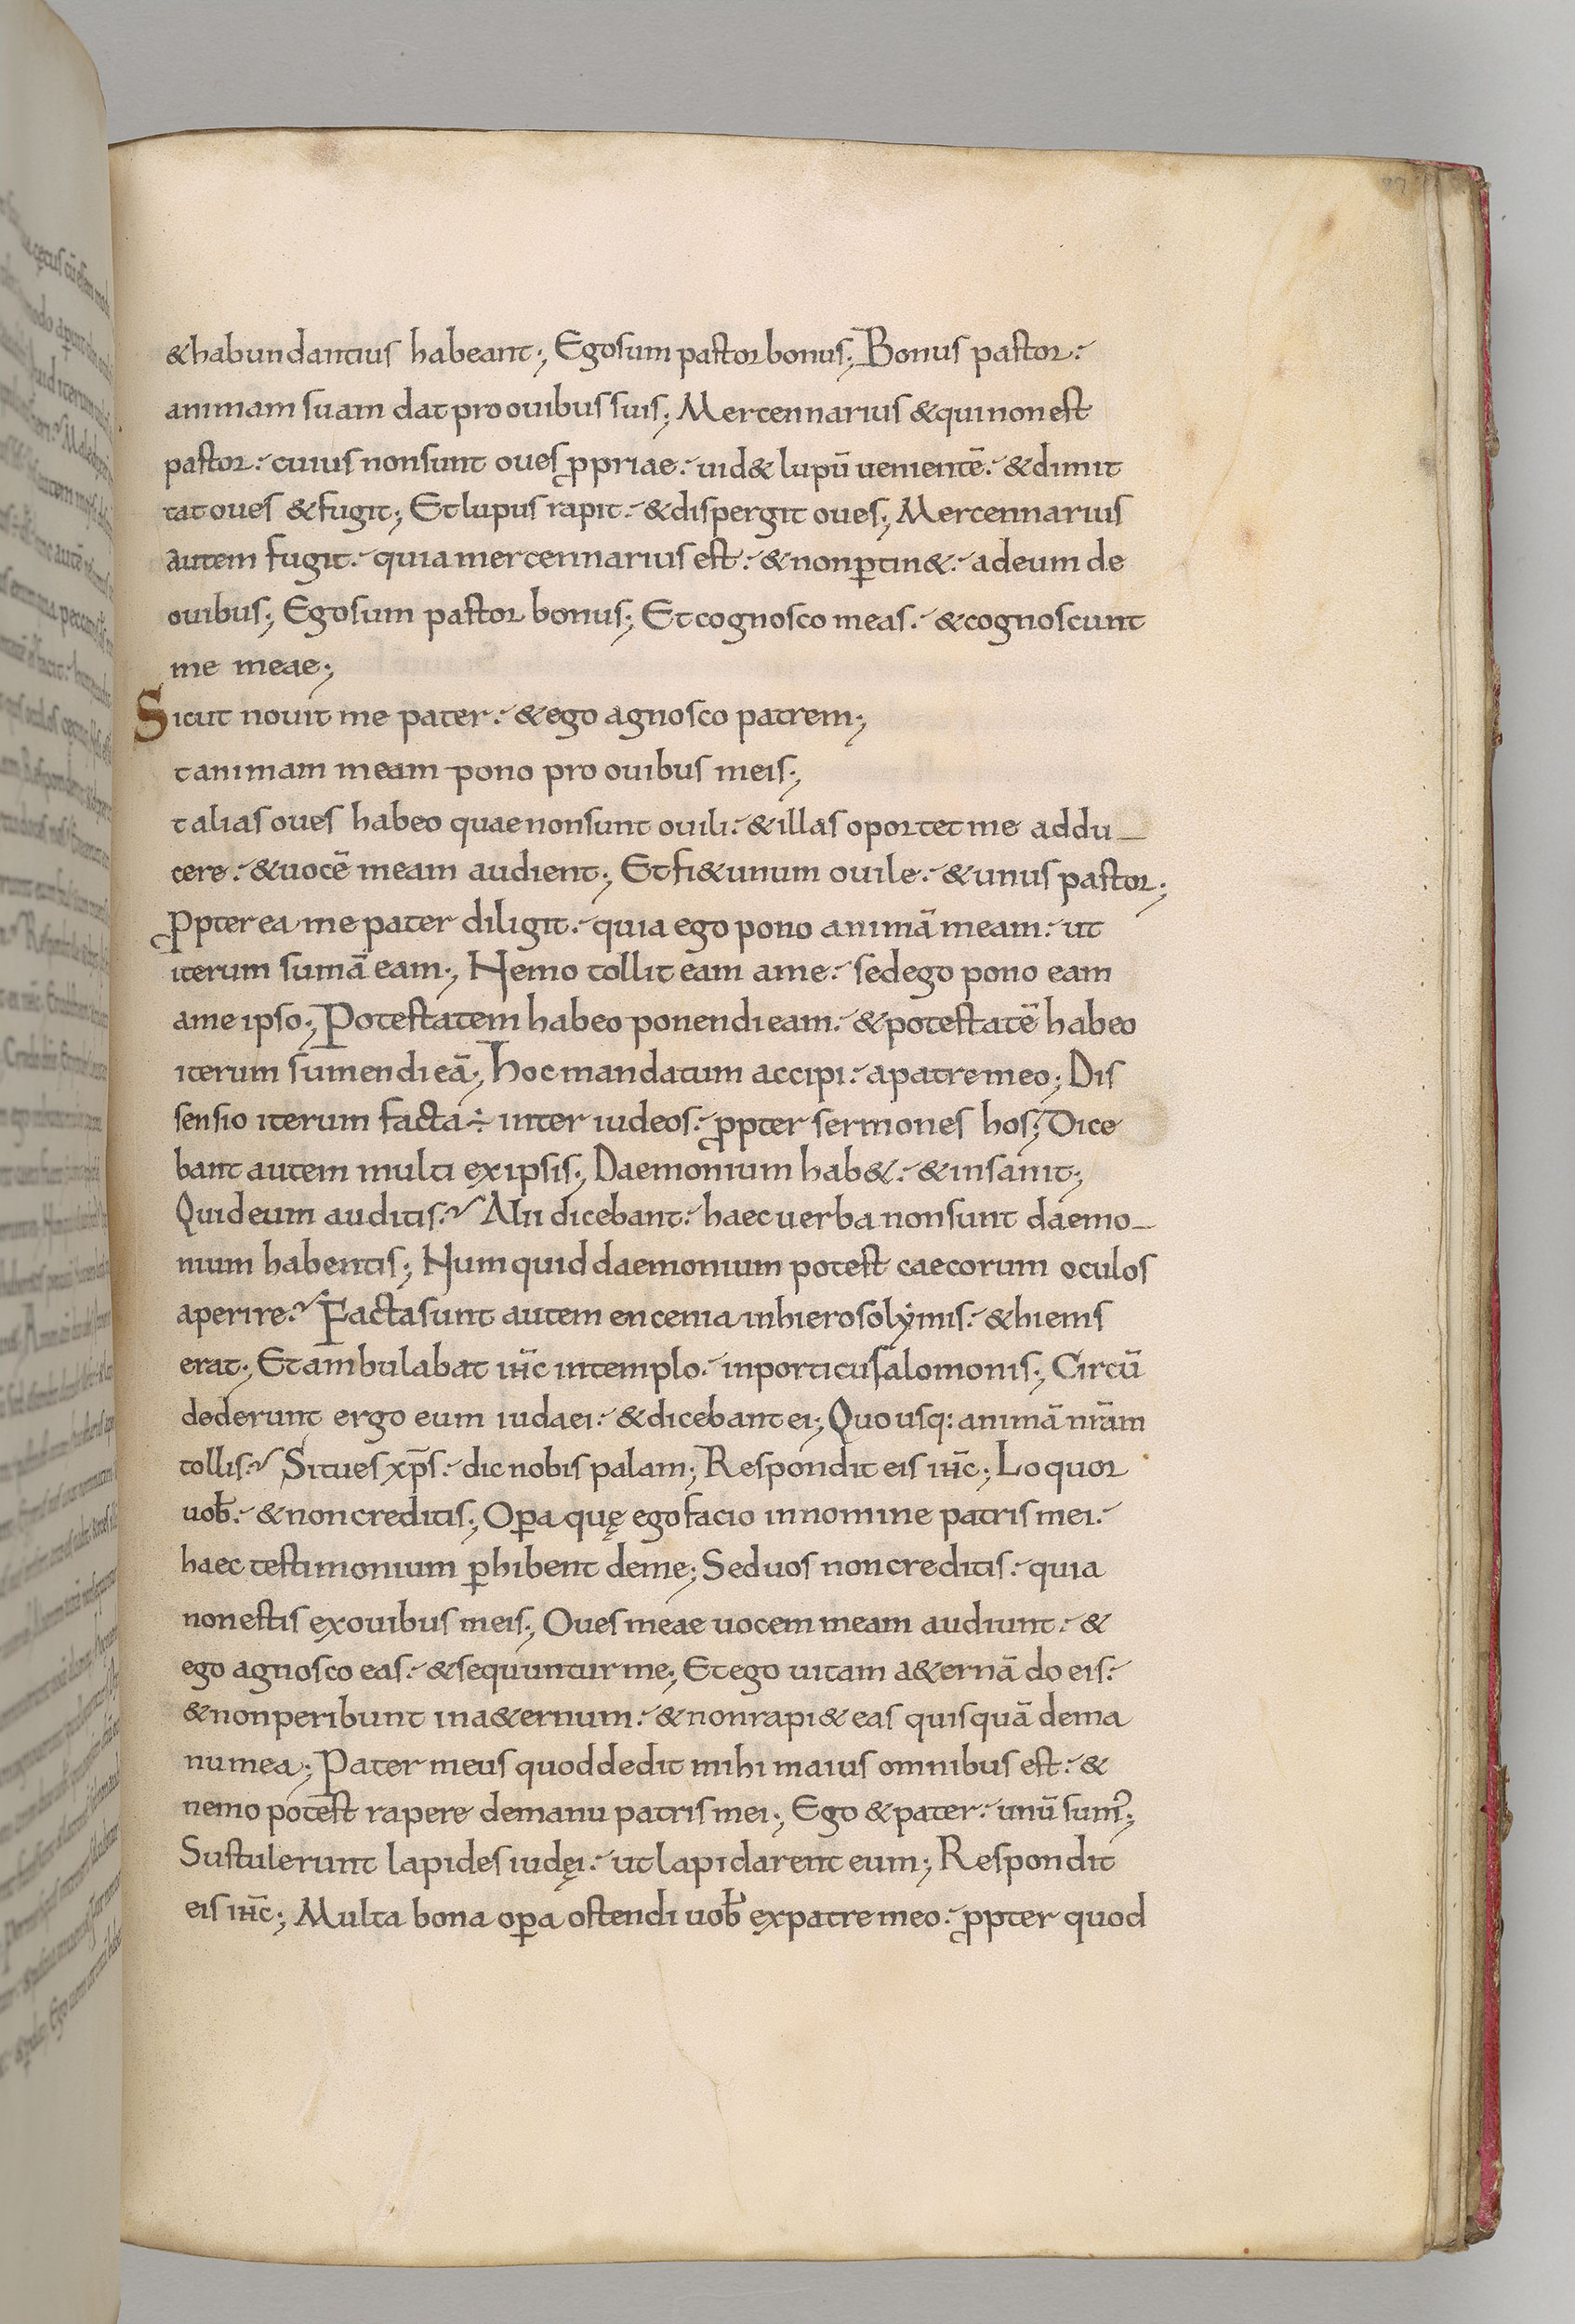 &habundantius habeant; Ego sum pastor bonus; Bonus pastor.
animam suam dat pro ouibus suis; Mercennarius & qui non est
pastor. cuius non sunt oues ꝓpriae. uid& lupū uenientē. & dimit
tat oues & fugit; Et lupus rapit. & dispergit oues; Mercennarius
autem fugit. quia mercennarius est. & non ꝑtin&. ad eum de
ouibus; Ego sum pastor bonus; Et cognosco meas. & cognoscunt
me meae;
Sicut nouit me pater. & ego agnosco patrem;
t animam meam pono pro ouibus meis;
t alias oues habeo quae non sunt ouili. & illas oportet me addu_
cere. & uocē meam audient; Et fi& unum ouile. & unus pastor;
Ꝓpterea me pater diligit. quia ego pono animā meam. ut
iterum sumā eam; Nemo tollit eam a me. sed ego pono eam
a me ipso; Potestatem habeo ponendi eam. & potestatē habeo
iterum sumendi eā; hoc mandatum accipi. a patre meo; Dis
sensio iterum facta ÷ inter iudeos. ꝓpter sermones hos; Dice
bant autem multi ex ipsis; Daemonium hab&. & insanit;
Quid eum auditis? Alii dicebant. haec uerba non sunt daemo_
nium habentis; Numquid daemonium potest caecorum oculos
aperire? Facta sunt autem encenia in hierosolẏmis. & hiems
erat; Et ambulabat ih̄c in templo. in porticu salomonis; Circū
dederunt ergo eum iudaei. & dicebant ei; Quousq: animā nr̄am
tollis? Si tu es xp̄s. dic nobis palam; Respondit eis ih̄c; Loquor
uob̄. & non creditis; Oꝑa quę ego facio in nomine patris mei.
haec testimonium ꝑhibent de me; Sed uos non creditis. quia
non estis ex ouibus meis; Oues meae uocem meam audiunt. &
ego agnosco eas. & sequuntur me; Et ego uitam a&ernā do eis.
& non peribunt in a&ernum. & non rapi& eas quisquā de ma
nu mea; Pater meus quod dedit mihi maius omnibus est. &
nemo potest rapere de manu patris mei; Ego & pater. unū sum᷒;
Sustulerunt lapides iudęi. ut lapidarent eum; Respondit
eis ih̄c; Multa bona oꝑa ostendi uob̄ ex patre meo. ꝓpter quod